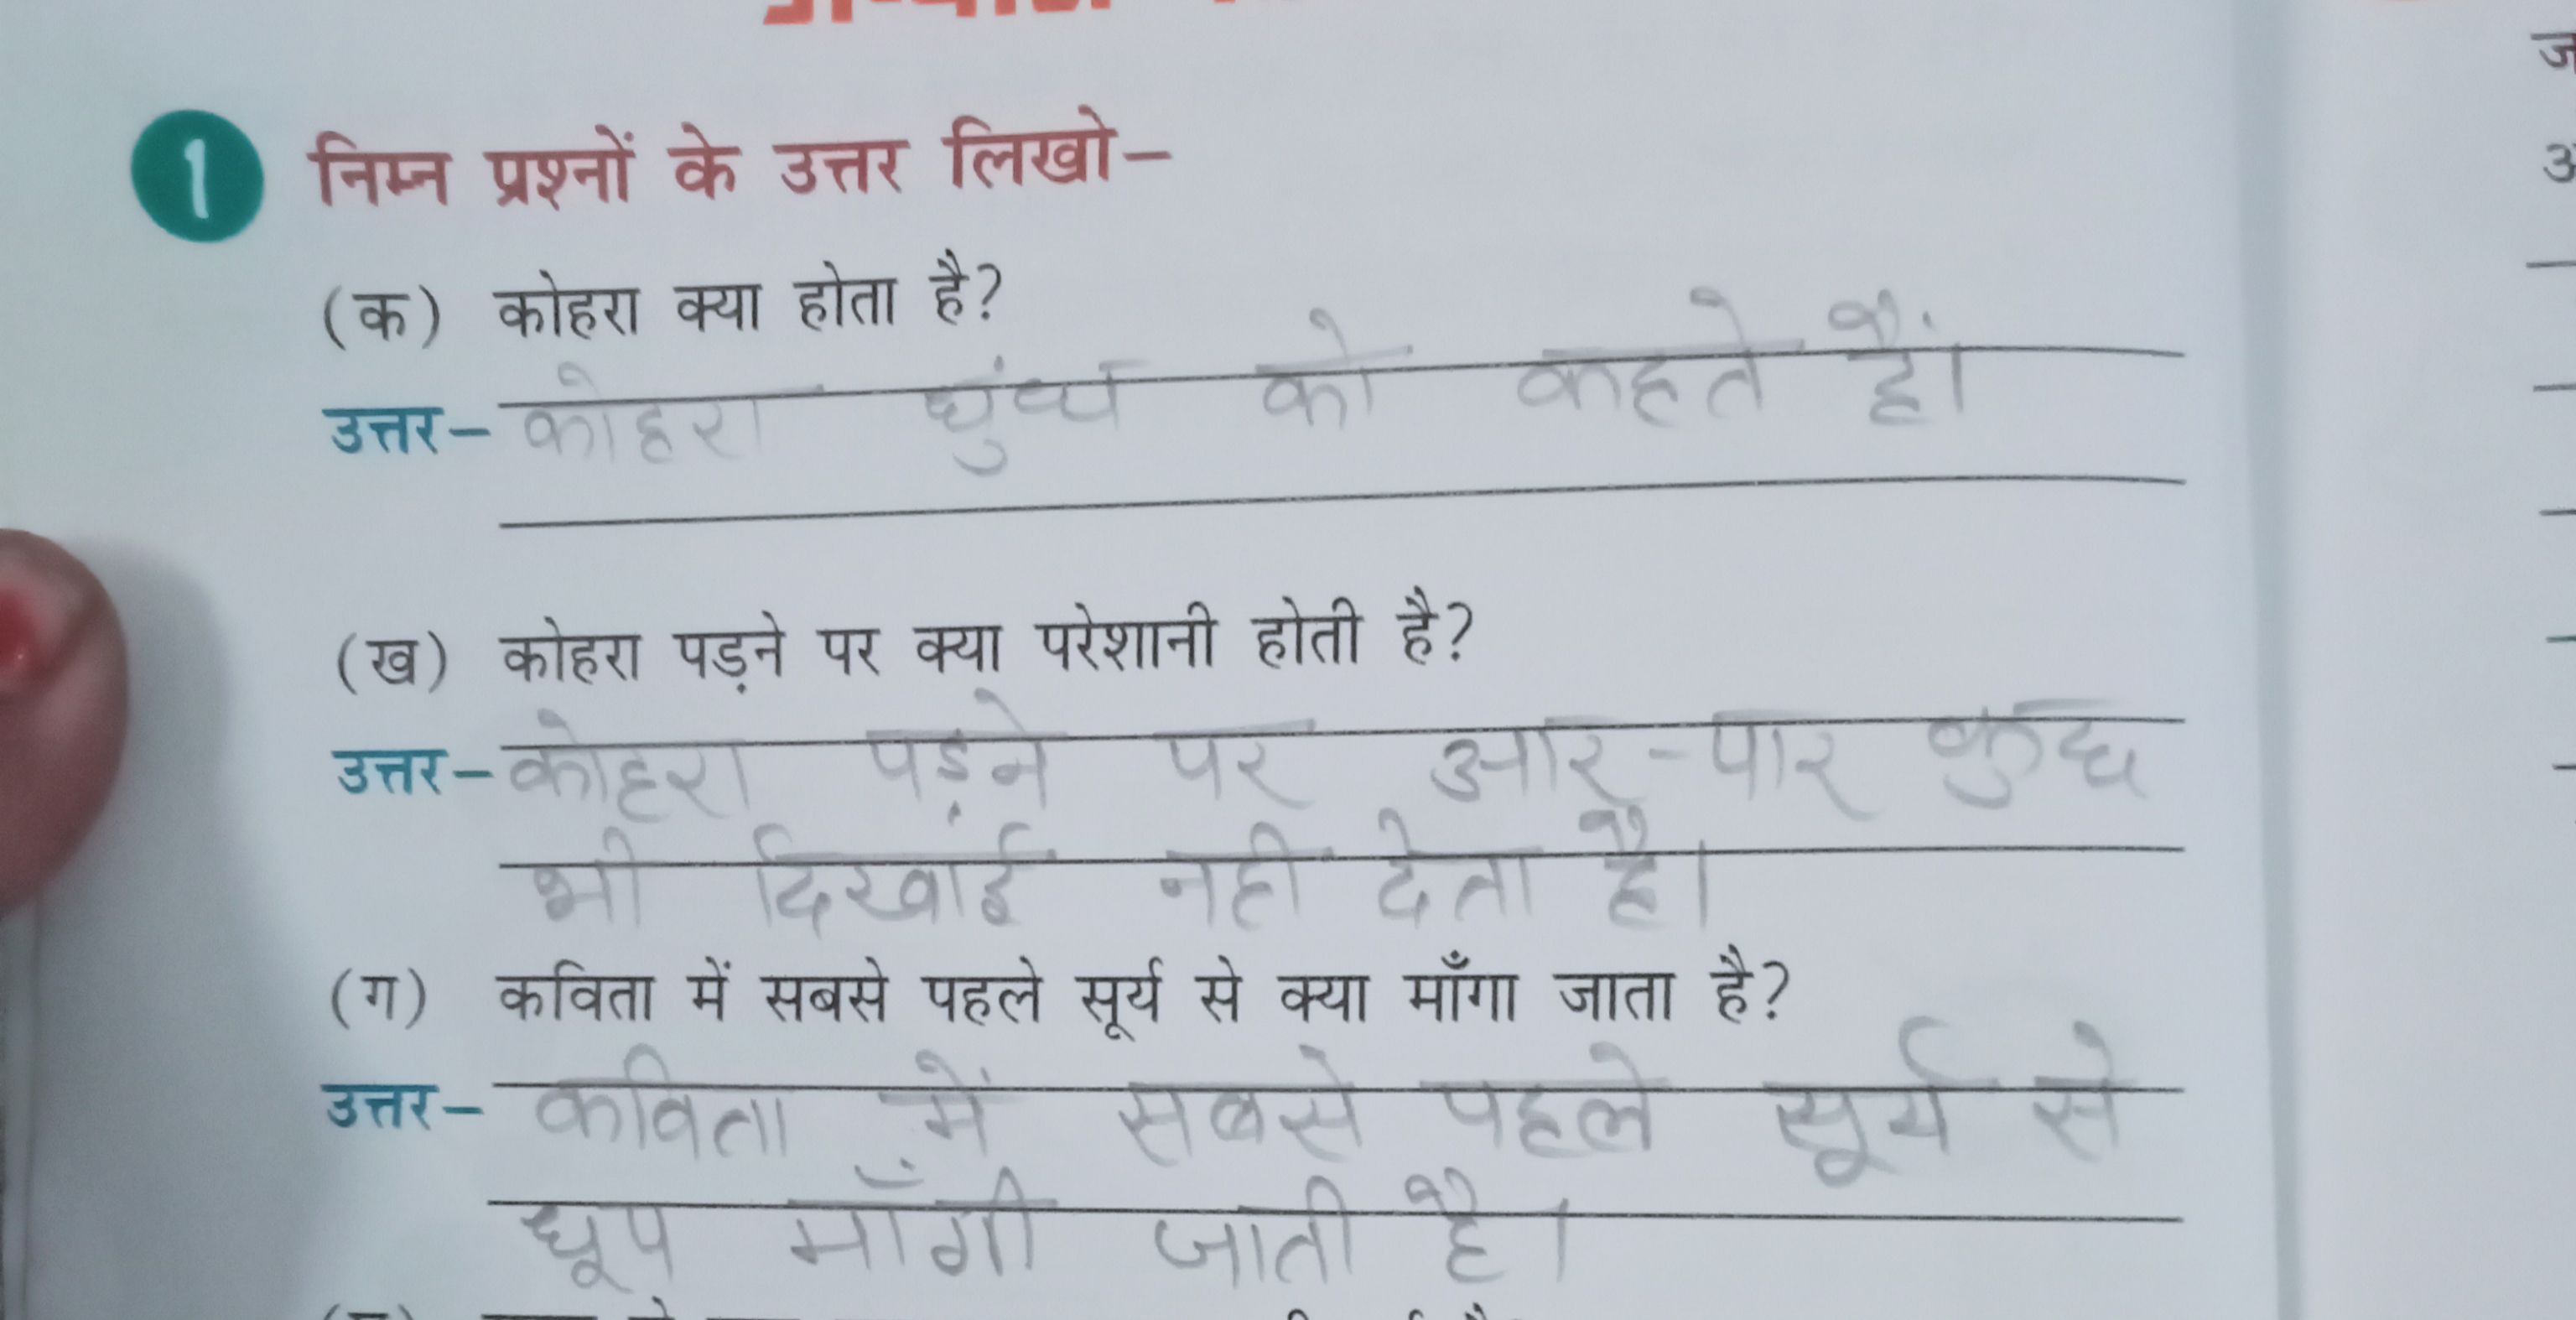 1 निम्न प्रश्नों के उत्तर लिखो–
(क) कोहरा क्या होता है?
उत्तर– कोहरा धुंध को कहते हैं।
(ख) कोहरा पड़ने पर क्या परेशानी होती है?
उत्तर– कोहरा पड़ने पर आर-पार कुछ
भी दिखाई नही देता है।
(ग) कविता में सबसे पहले सूर्य से क्या माँगा जाता है?
उत्तर– कविता में सबसे पहले सूर्य से
धूप माँगी जाती है।